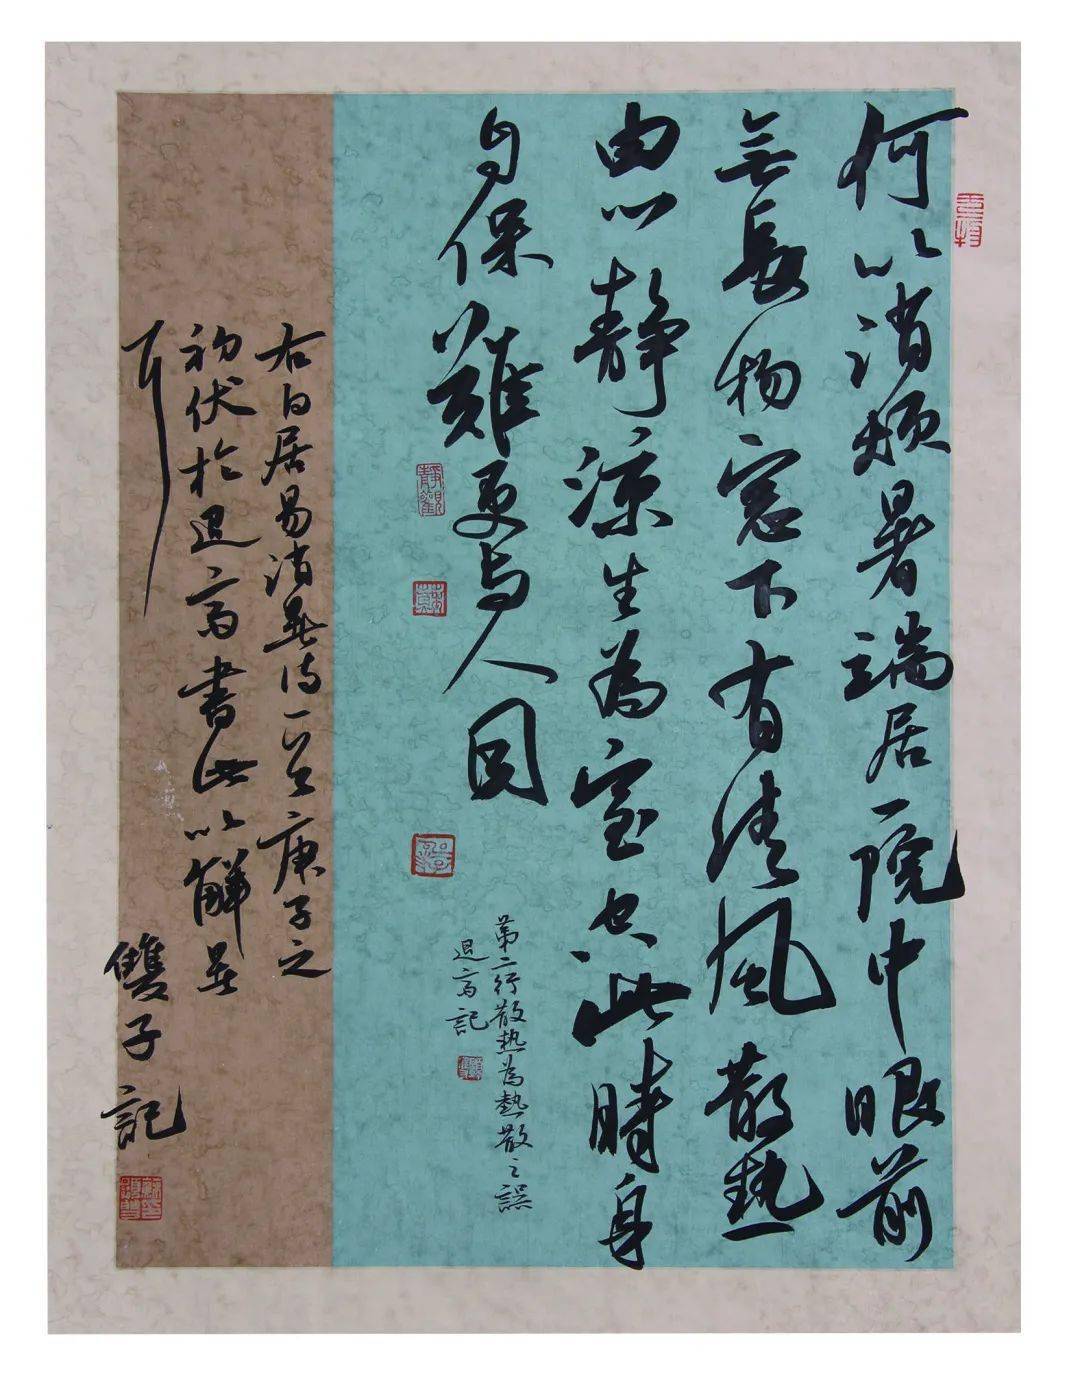 何以消煩暑端居一院中眼前
無長物窓下有清風散熱
由心静凉生為室空此時身
自保難更与人同
靜觀
第二行散热為熱散之誤
退斋記
右白居易消暑诗一首庚子之
初伏於退斋書此以解暑
耳 雙子記